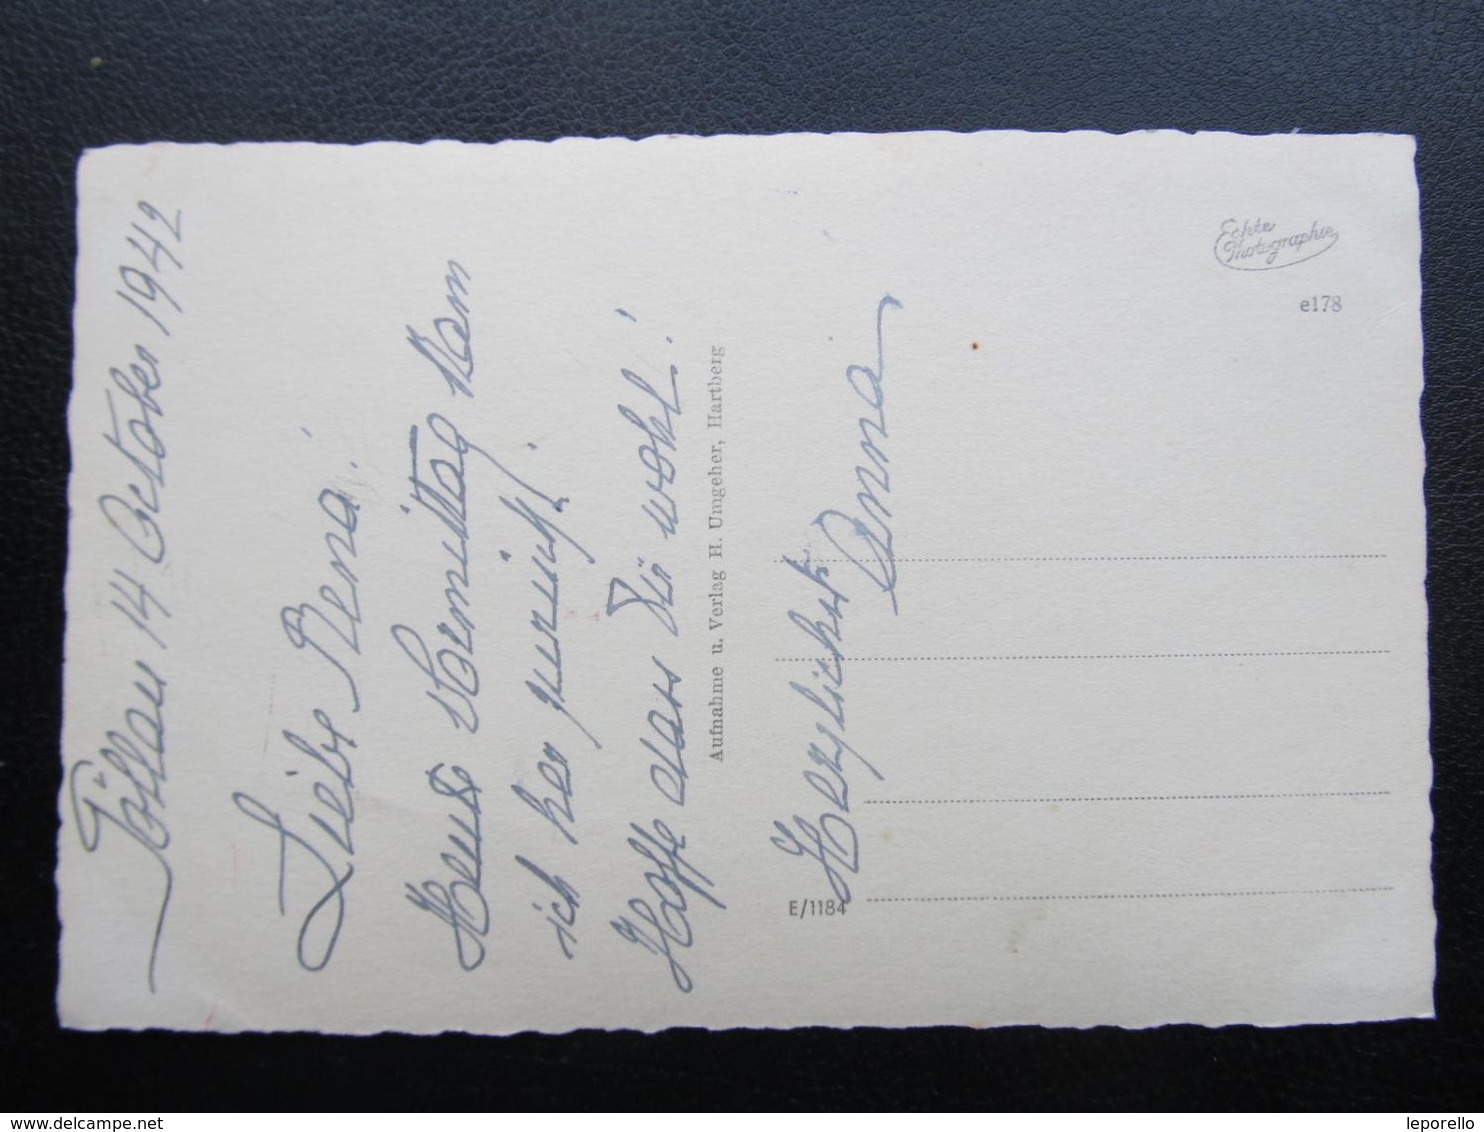 Pöllau 14 October 1942
Liebe Rena!
Heute Vormittag kam
ich her zurück!
Hoffe dass Dir wohl!
Herzlichst
Anna
Aufnahme u. Verlag H. Umgeher, Hartberg
E/1184
Echte
Photographie
e178
www.delcampe.net
leporello